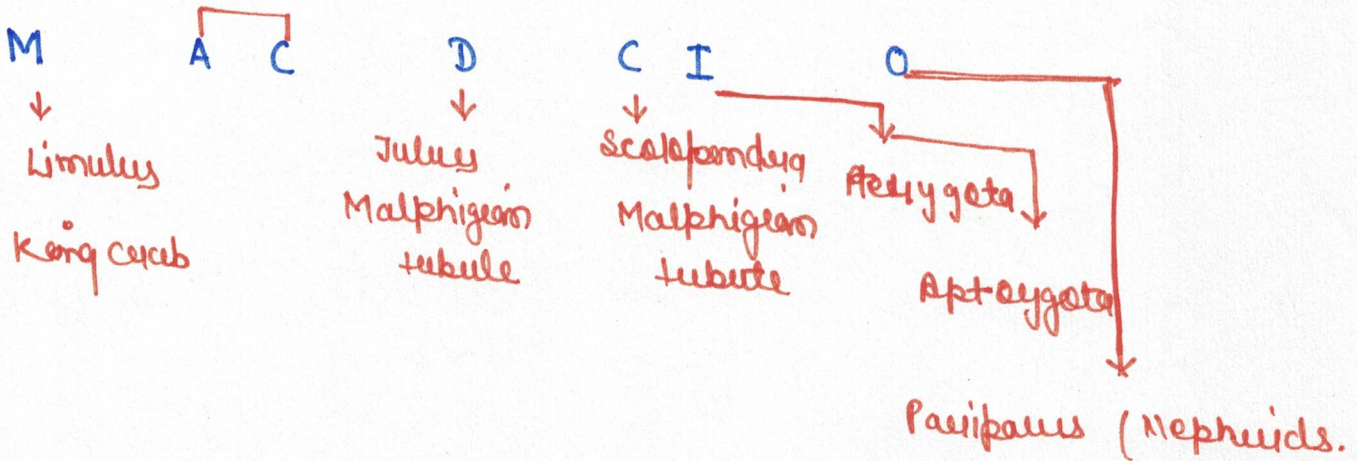 M A C D C I O
Limulus
King crab
Julus
Malphigian
tubule
Scolopendra
Malphigian
tubule
Pterygota
Apterygota
Peripatus (Nephrids.